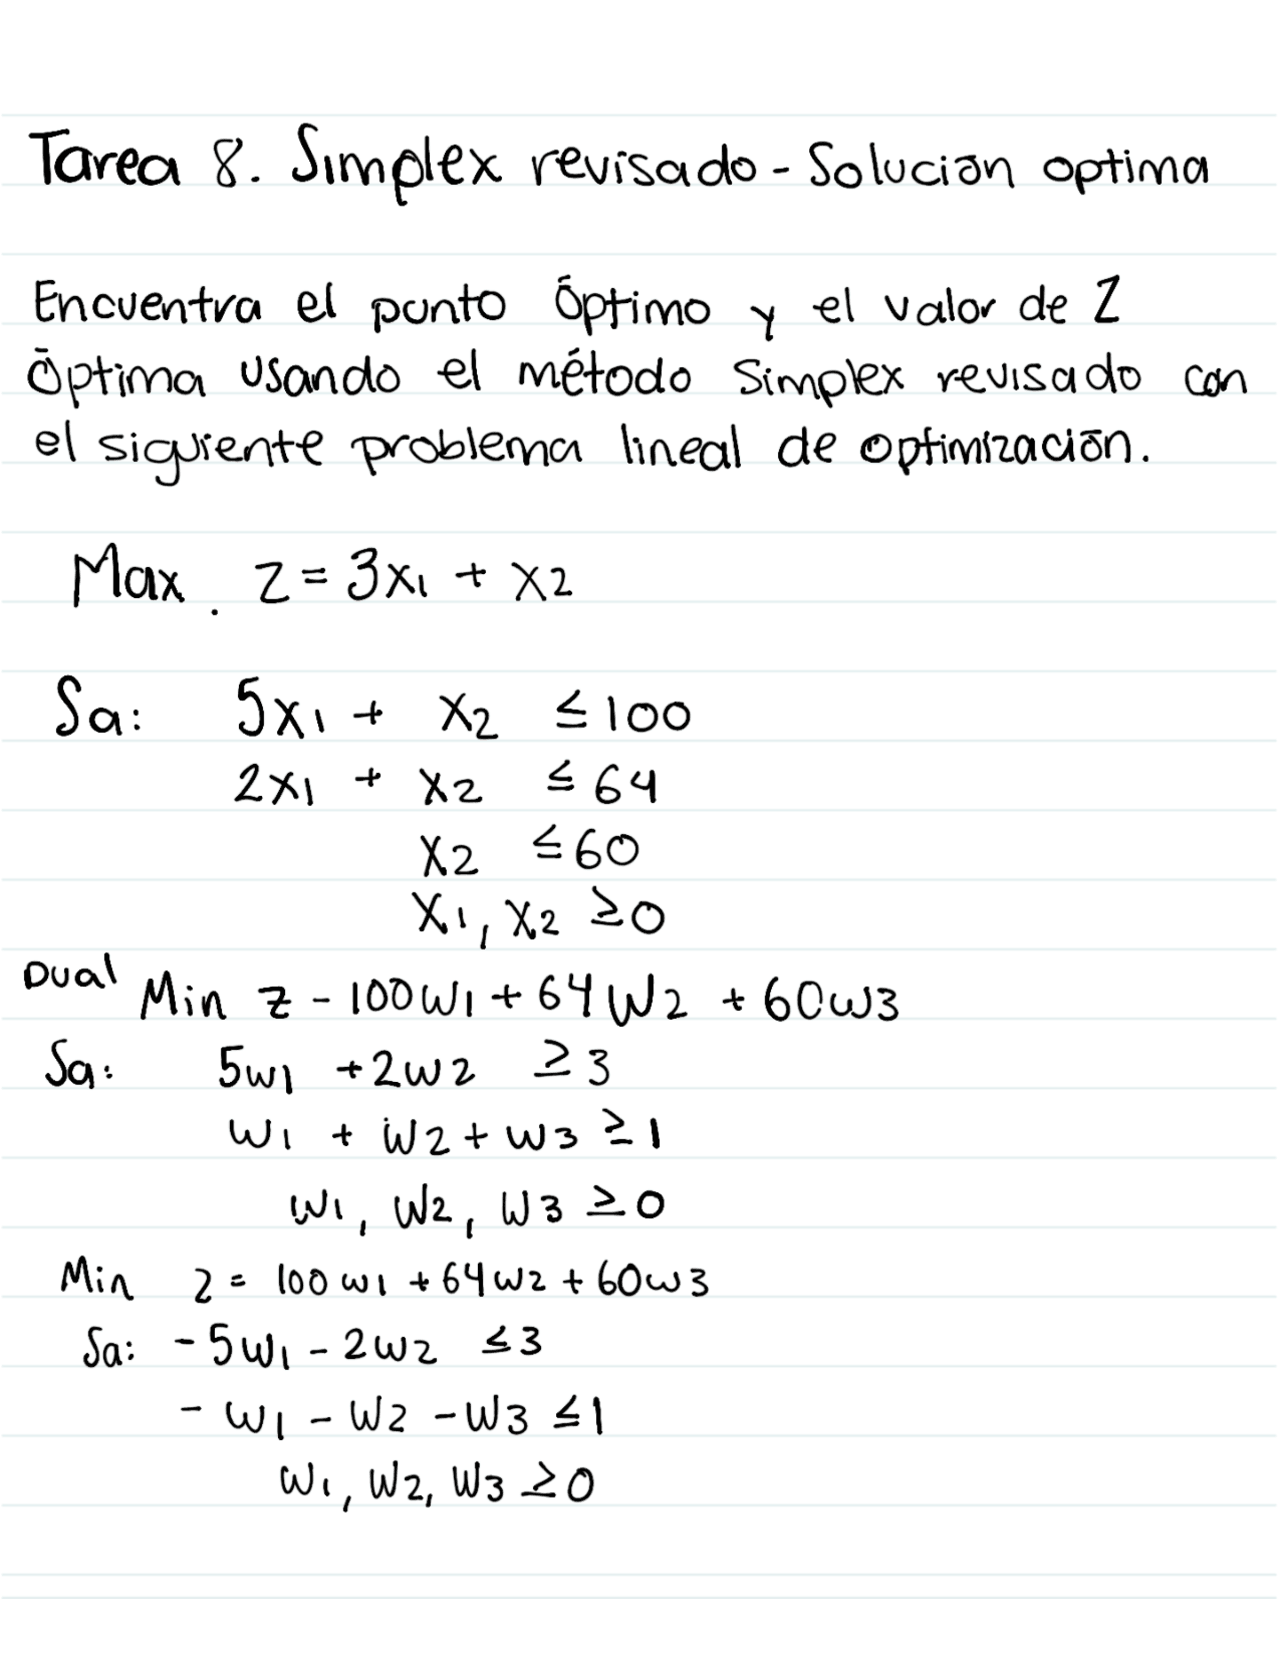 Tarea 8. Simplex revisado - Solución optima
Encuentra el punto óptimo y el valor de Z
óptima usando el método simplex revisado con
el siguiente problema lineal de optimización.
Max. z = 3x1 + x2
Sa: 5x1 + x2 ≤ 100
2x1 + x2 ≤ 64
x2 ≤ 60
x1, x2 ≥ 0
Dual
Min z - 100w1 + 64w2 + 60w3
Sa: 5w1 + 2w2 ≥ 3
w1 + w2 + w3 ≥ 1
w1, w2, w3 ≥ 0
Min z = 100w1 + 64w2 + 60w3
Sa: -5w1 - 2w2 ≤ 3
- w1 - w2 - w3 ≤ 1
w1, w2, w3 ≥ 0